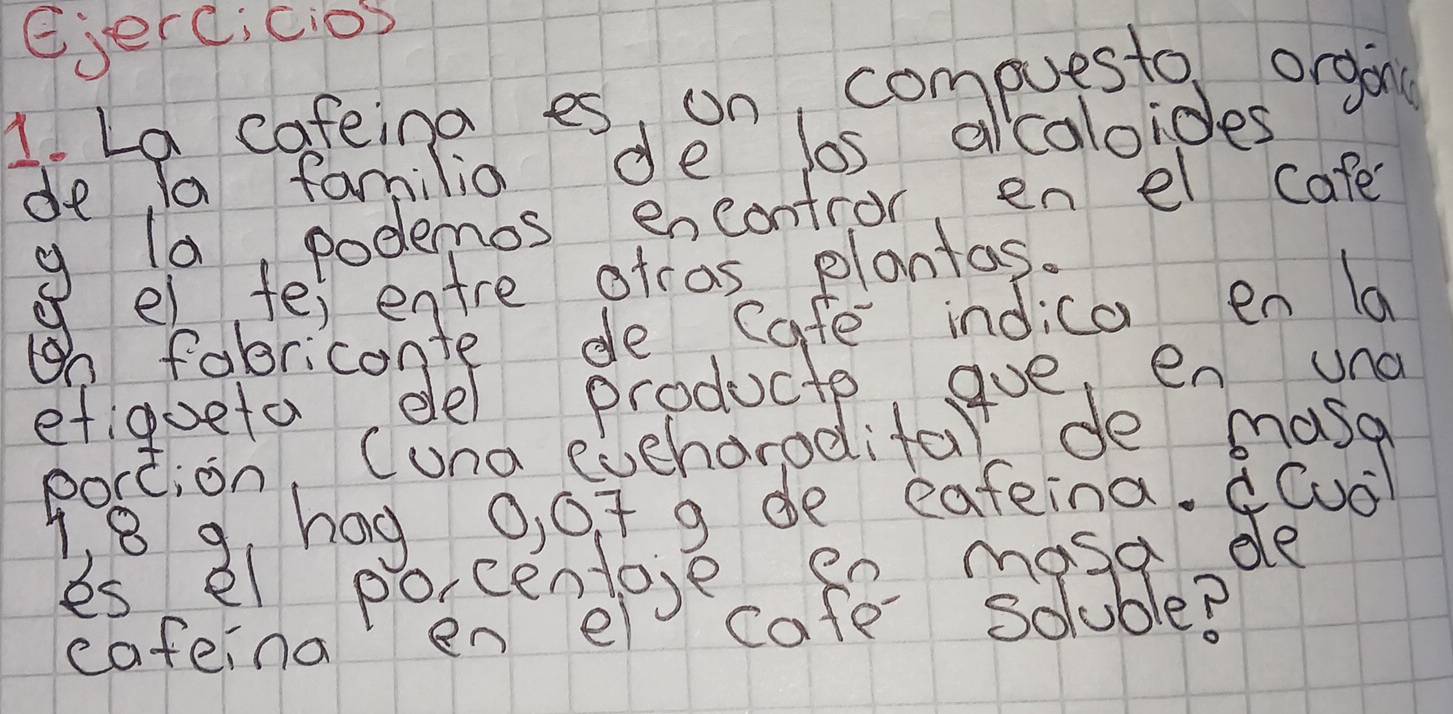 Ejercicios
1. La cafeina es un compuesto orgánic
de la familia de los alcaloides
y la podemos encontrar, en el café
y el te, entre otras plantas.
Un fabricante de café indica en la
etiqueta del producto que, en una
porción, (una cucharadita) de masa
1,8 g, hay 0,07 g de cafeina. ¿Cuál
es el porcentaje en masa de
cafeina en el café soluble?